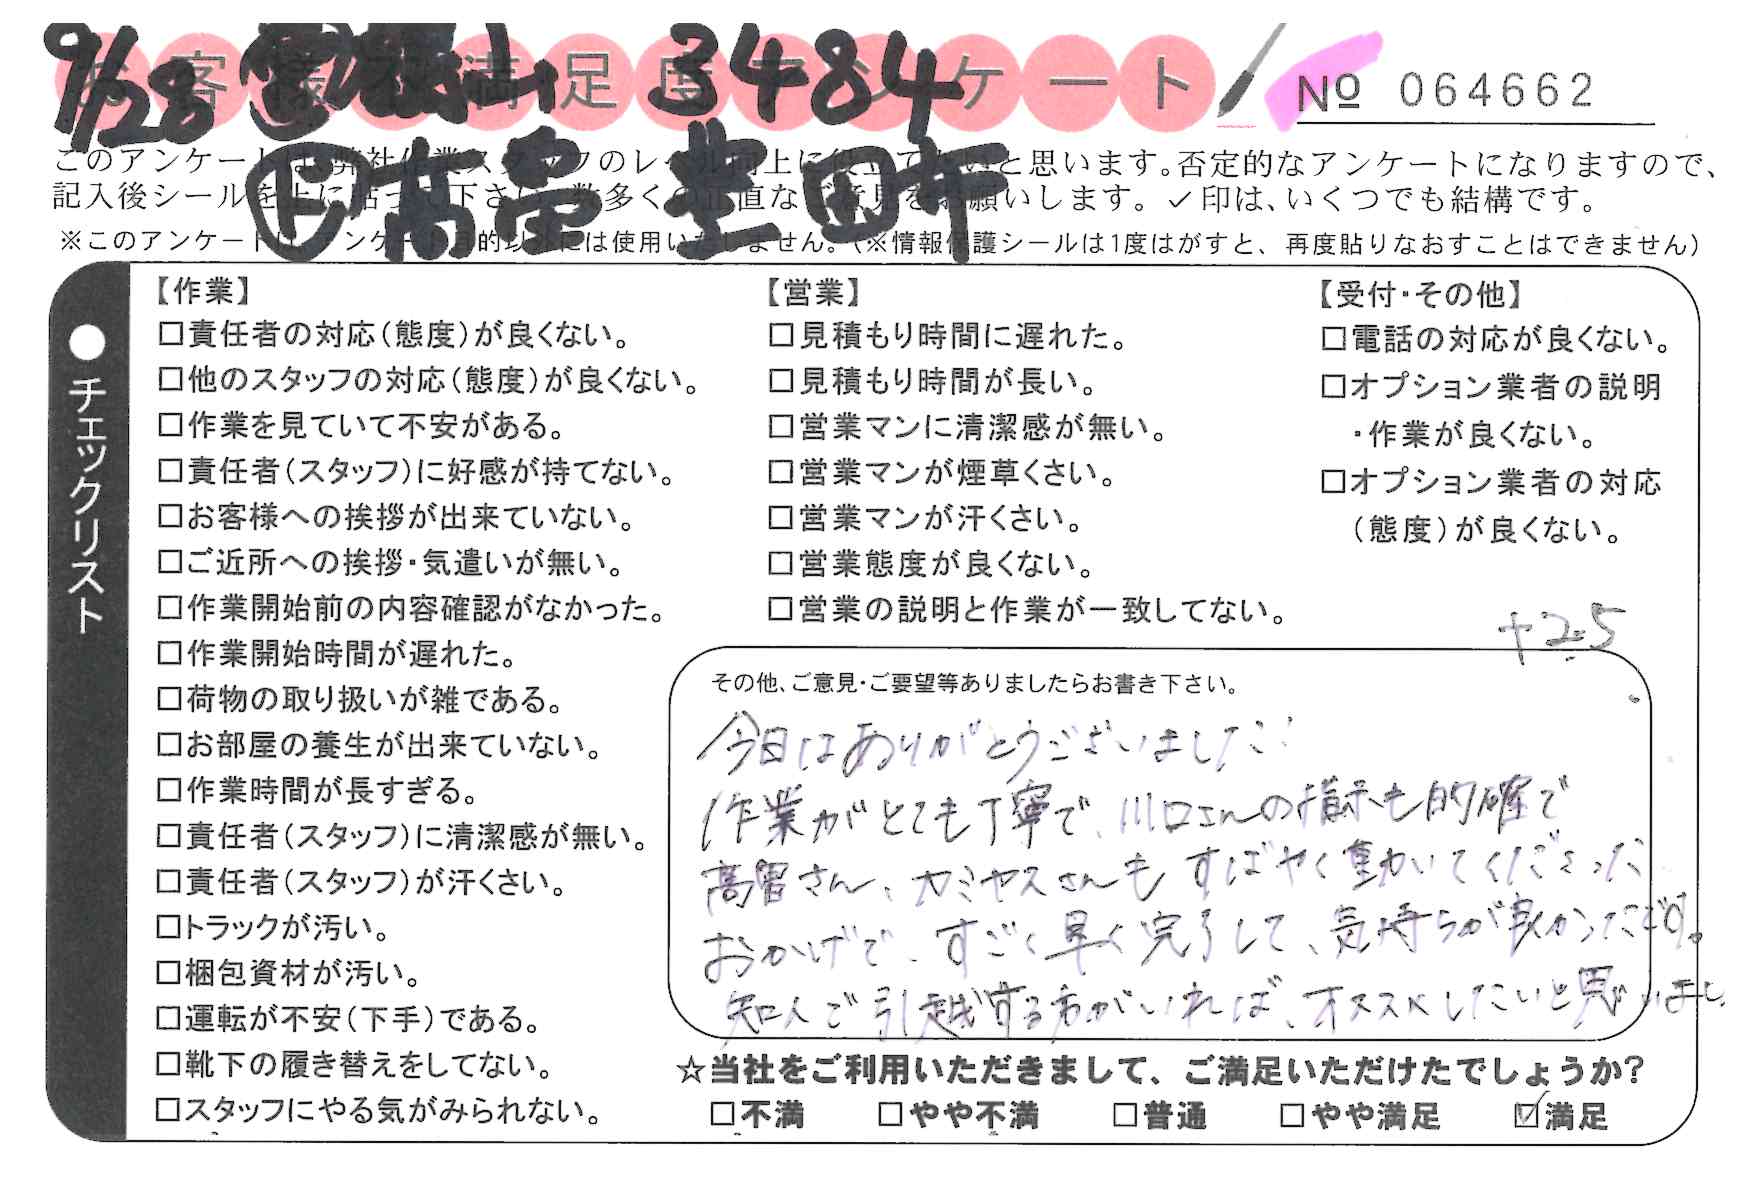 9/28 3484
お客様不満足度アンケート
№ 064662
㋣高営 豊田町
このアンケートは、弊社作業スタッフのレベル向上に役立てたいと思います。否定的なアンケートになりますので、
記入後シールを上に貼って下さい。数多くの正直なご意見をお願いします。✓印は、いくつでも結構です。
※このアンケートは、アンケート目的以外には使用いたしません。(※情報保護シールは1度はがすと、再度貼りなおすことはできません)
●チェックリスト
【作業】
□責任者の対応(態度)が良くない。
□他のスタッフの対応(態度)が良くない。
□作業を見ていて不安がある。
□責任者(スタッフ)に好感が持てない。
□お客様への挨拶が出来ていない。
□ご近所への挨拶・気遣いが無い。
□作業開始前の内容確認がなかった。
□作業開始時間が遅れた。
□荷物の取り扱いが雑である。
□お部屋の養生が出来ていない。
□作業時間が長すぎる。
□責任者(スタッフ)に清潔感が無い。
□責任者(スタッフ)が汗くさい。
□トラックが汚い。
□梱包資材が汚い。
□運転が不安(下手)である。
□靴下の履き替えをしてない。
□スタッフにやる気がみられない。
【営業】
□見積もり時間に遅れた。
□見積もり時間が長い。
□営業マンに清潔感が無い。
□営業マンが煙草くさい。
□営業マンが汗くさい。
□営業態度が良くない。
□営業の説明と作業が一致してない。
【受付・その他】
□電話の対応が良くない。
□オプション業者の説明
・作業が良くない。
□オプション業者の対応
(態度)が良くない。
+2.5
その他、ご意見・ご要望等ありましたらお書き下さい。
今日はありがとうございました!
作業がとても丁寧で、川口さんの指示も的確で
高習さん、カミヤスさんもすばやく動いてくださった
おかげで、すごく早く完了して、気持ちが良かったです。
知人で引越する方がいれば、オススメしたいと思いまし
☆当社をご利用いただきまして、ご満足いただけたでしょうか?
□不満 □やや不満 □普通 □やや満足 ☑満足